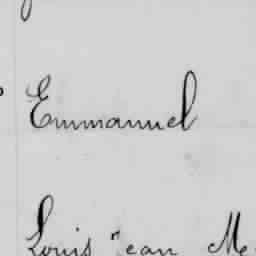 Emmanuel
Louis Jean M